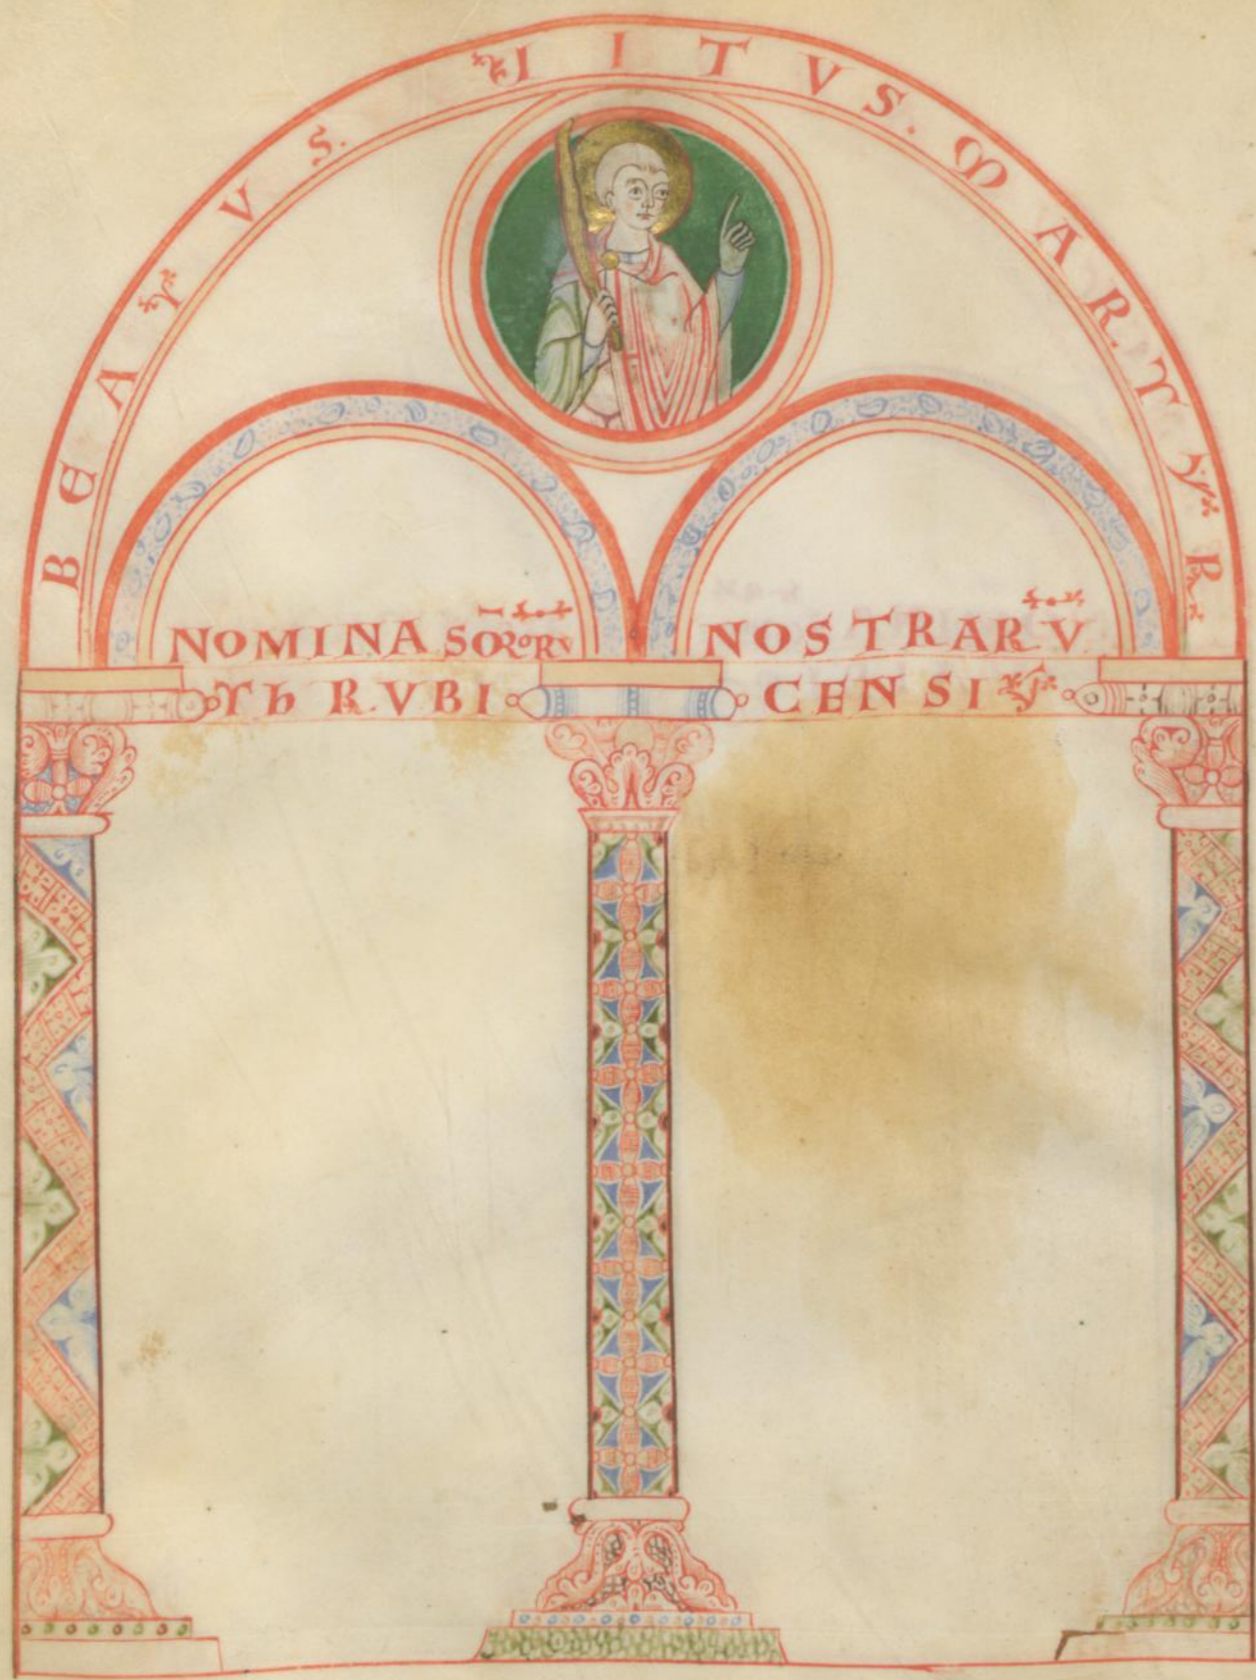 BEATVS. VITVS. MARTYR
NOMINA SORORV NOSTRARV
ThRVBICENSIV